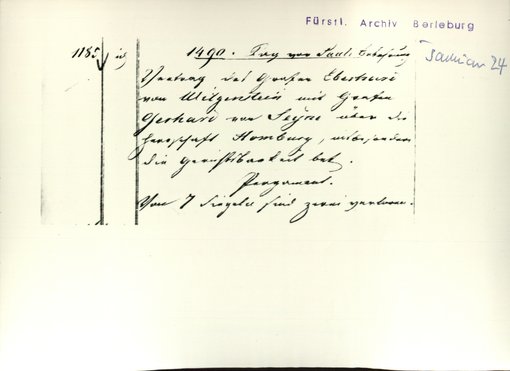 Fürstl. Archiv Berleburg
Januar 24
1185
1490. Tag vor Pauli Bekehrung
Vertrag des Grafen Eberhard
von Witgenstein mit Grafen
Gerhard von Seyne über die
Herrschaft Homburg, insbesondere
die Gerichtsbarkeit bet.
Pergament.
Von 7 Siegeln sind zwei verloren.